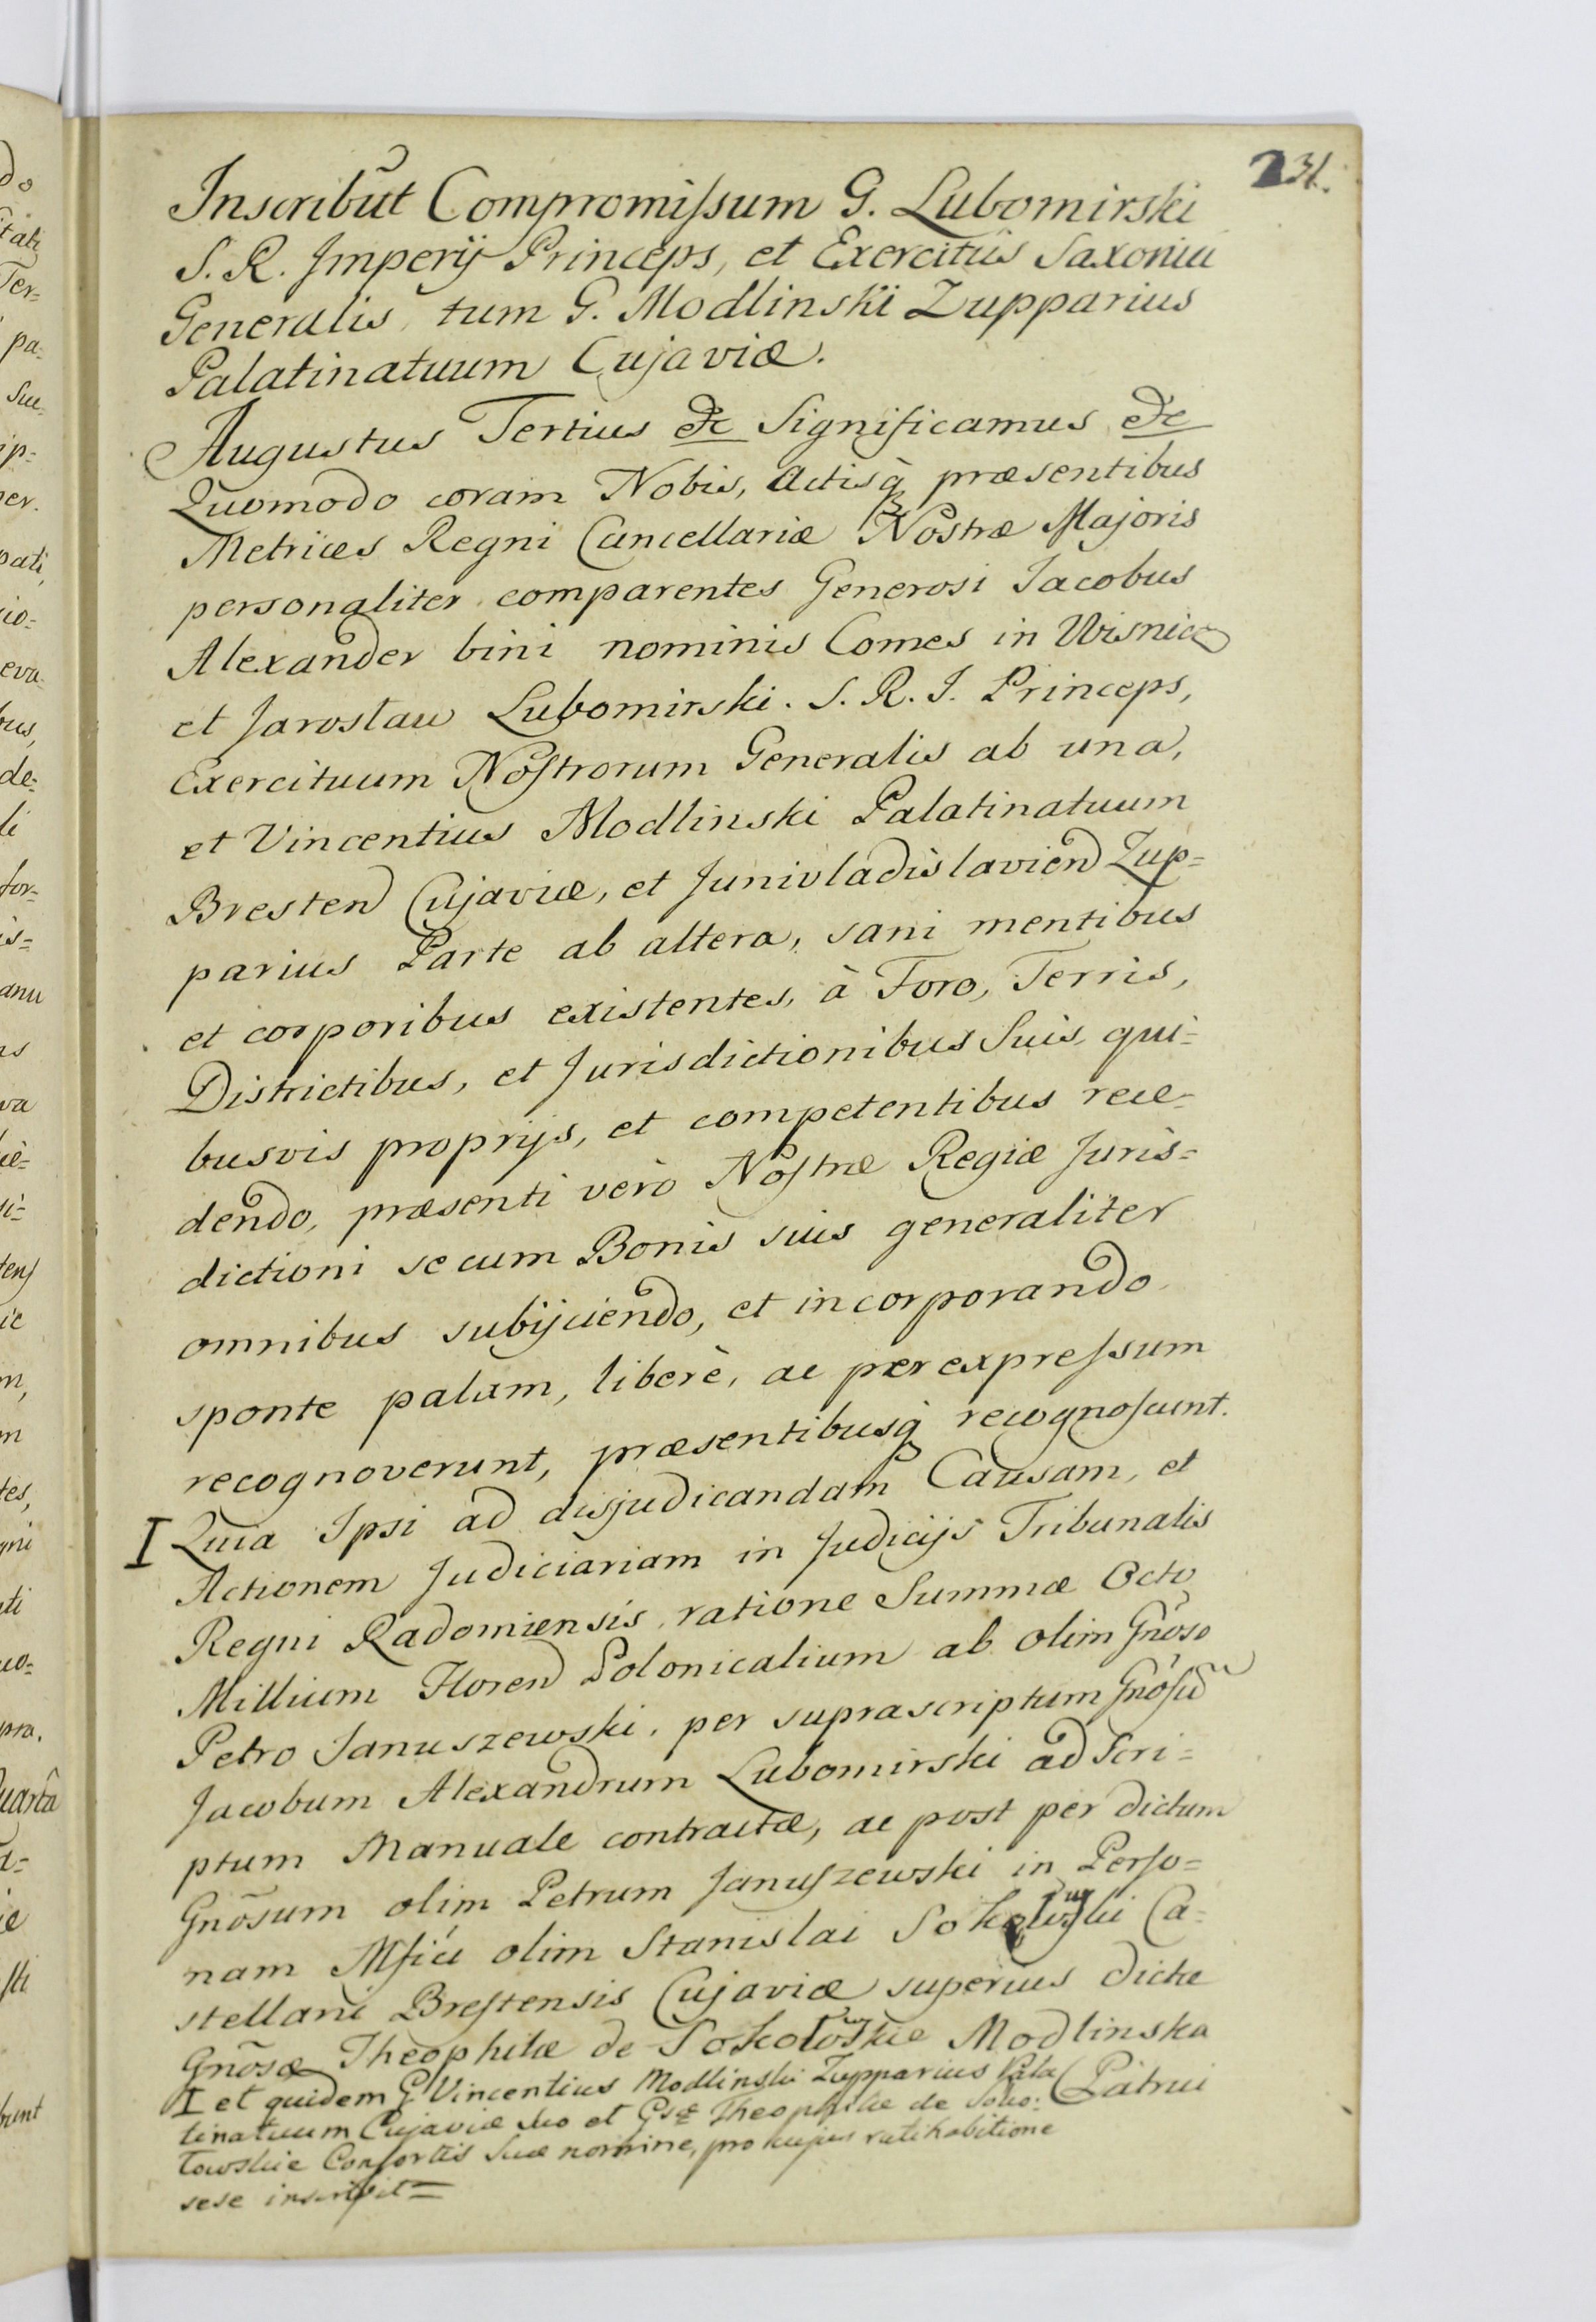 231.
Inscribũt Compromiſsum G. Lubomirski
S. R. Imperij Princeps, et Exercitûs Saxonici
Generalis, tum G. Modlinski Zupparius
Palatinatuum Cujaviæ.
Augustus Tertius &c Significamus &c
Quomodo coram Nobis, Actisq̀ præsentibus
Metrices Regni Cancellariæ Nostræ Majoris
personaliter comparentes Generosi Jacobus
Alexander bini nominis Comes in Wisnice
et Jaroslau Lubomirski. S. R. I. Princeps,
Exercituum Noſtrorum Generalis ab una,
et Vincentius Modlinski Palatinatuum
Bresten Cujaviæ, et Junivladislavien Zup=
parius Parte ab altera, sani mentibus
et corporibus existentes, à Foro, Terris,
Districtibus, et Jurisdictionibus Suis, qui=
busvis proprijs, et competentibus rece=
dendo, præsenti verò Noſtræ Regiæ Juris=
dictioni secum Bonis suis generaliter
omnibus subijciendo, et incorporando
sponte palam, liberè, ac per expreſsum
recognoverunt, præsentibusq̀ recognoſcunt.
I Quia Ipsi ad disjudicandam Causam, et
Actionem Judiciariam in Judicijs Tribunalis
Regni Radomiensis, ratione Summæ Octo
Millium Floren Polonicalium ab olim Gnõso
Petro Januszewski, per suprascriptum Gnõſũ
Jacobum Alexandrum Lubomirski ad Scri=
ptum Manuale contractæ, ac post per dictum
Gnõsum olim Petrum Januſzewski in Perſo=
nam Mſici olim Stanislai Sokołowſki Ca=
stellani Breſtensis Cujaviæ superius dictæ
Gnõsæ Theophilæ de Sokołowskie Modlinska
Patrui
I et quidem G Vincentius Modlinski Zupparius Pala
tinatuum Cujaviæ suo et Gsæ Theophilæ de Soko=
łowskie Conſortis Suæ nomine, pro cujus ratihabitione
sese inscribit=